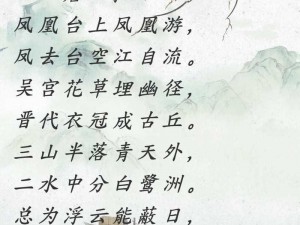 凤凰台上凤凰游，
凤去台空江自流。
吴宫花草埋幽径，
晋代衣冠成古丘。
三山半落青天外，
二水中分白鹭洲。
总为浮云能蔽日，